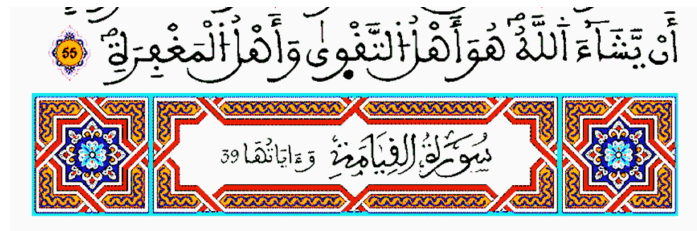 أَنْ يَّشَآءَ اَ۬للَّهُۖ هُوَ أَهْلُ اُ۬لتَّقْو۪ىٰ وَأَهْلُ اُ۬لْمَغْفِرَةِۖ 55
سُورَةُ اُ۬لْقِيَٰمَةِ وَءَايَاتُهَا 39